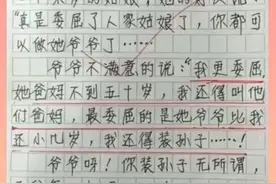 "真是委屈了人家姑娘了，你都可
以做她爷爷了……
爷爷不满意的说："我更委屈，
她爸妈不到五十岁，我还得叫他
们爸妈，最委屈的是她爷爷比我
还小几岁，我还得装孙子……！
爷爷呀！你装孙子无所谓，